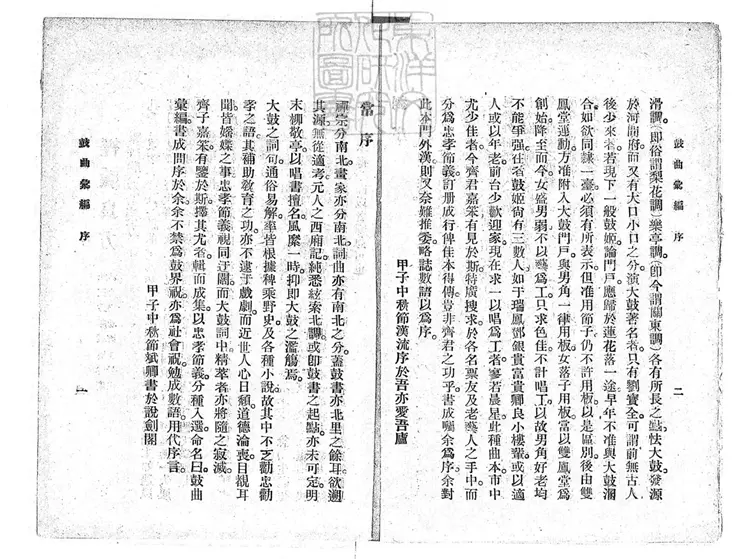 鼓曲彙編 序
二
滑調(卽俗謂梨花調)樂亭調(卽今謂關東調)各有所長之點怯大鼓發源
於河間府而又有大口小口之分演大鼓著名者只有劉寶全可謂前無古人
後少來者若現下一般鼓姬論門戶應歸於蓮花落一途早年不准與大鼓溷
合如欲同隸一臺必須有所表示但准用節子仍不許用板以是區別後由雙
鳳堂運動方准附入大鼓門戶與男角一律用板女落子用板當以雙鳳堂爲
創始降至而今女盛男弱不以藝爲工只求色佳不計唱工以故男角好老均
不能爭强在者鼓姬尙有三數人如于瑞鳳馮銀貴富貴卿良小樓輩或以適
人或以年老前台少歡迎家現在求一以唱爲工者寥若晨星此種曲本市中
尤少佳者今齊君嘉笨有見於斯特廣搜求於各名票友及老藝人之手中而
分爲忠孝節義訂册成行俾佳本得傳豈非齊君之功乎書成囑余爲序余對
此本門外漢則又奈難推委略誌數語以爲序
甲子中秋節漢流序於吾亦愛吾廬
常序
禪宗分南北畫家亦分南北詞曲亦有南北之分蓋鼓書亦北里之餘耳欲溯
其源無從適考元人之西廂記純悉絃索北調或卽鼓書之起點亦未可定明
末柳敬亭以唱書擅名風縻一時抑卽大鼓之濫觴焉
大鼓之詞句通俗易解率皆根據稗乘野史及各種小說故其中不乏勸忠勸
孝之語其補助敎育之功亦不遜于戲劇而近世人心日頹道德淪喪目覩耳
聞皆媟㜫之事忠孝節義視同迂闊而大鼓詞中精萃者亦將隨之寂滅
齊子嘉笨有鑒於斯擇其尤者輯而成集以忠孝節義分種入選命名曰鼓曲
彙編書成問序於余余不禁爲鼓界祝亦爲社會祝勉成數語用代序言
甲子中秋節斌卿書於說劍閣
鼓曲彙編 序
一